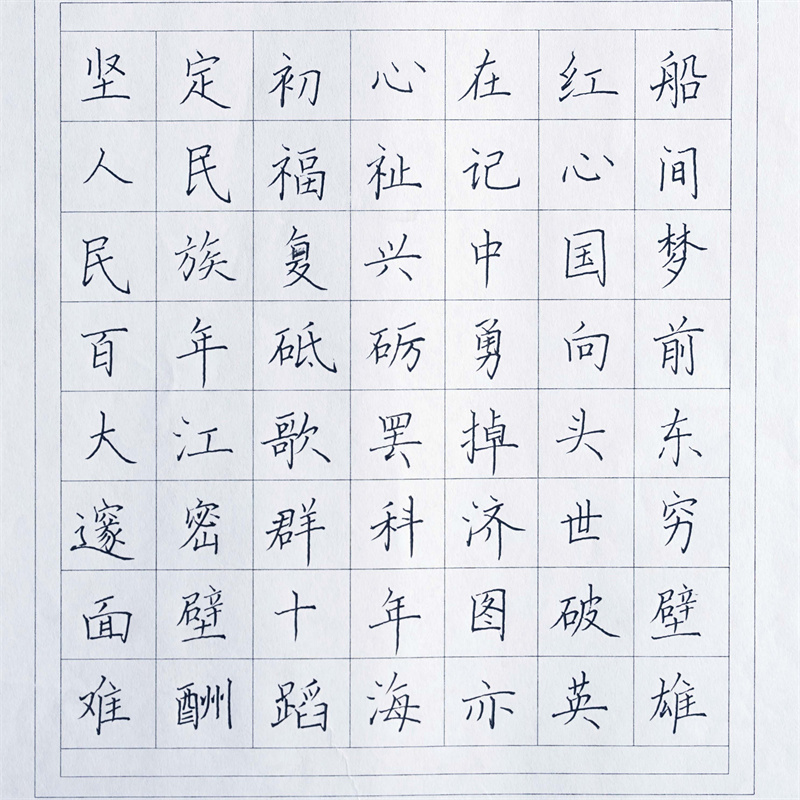 坚定初心在红船
人民福祉记心间
民族复兴中国梦
百年砥砺勇向前
大江歌罢掉头东
邃密群科济世穷
面壁十年图破壁
难酬蹈海亦英雄